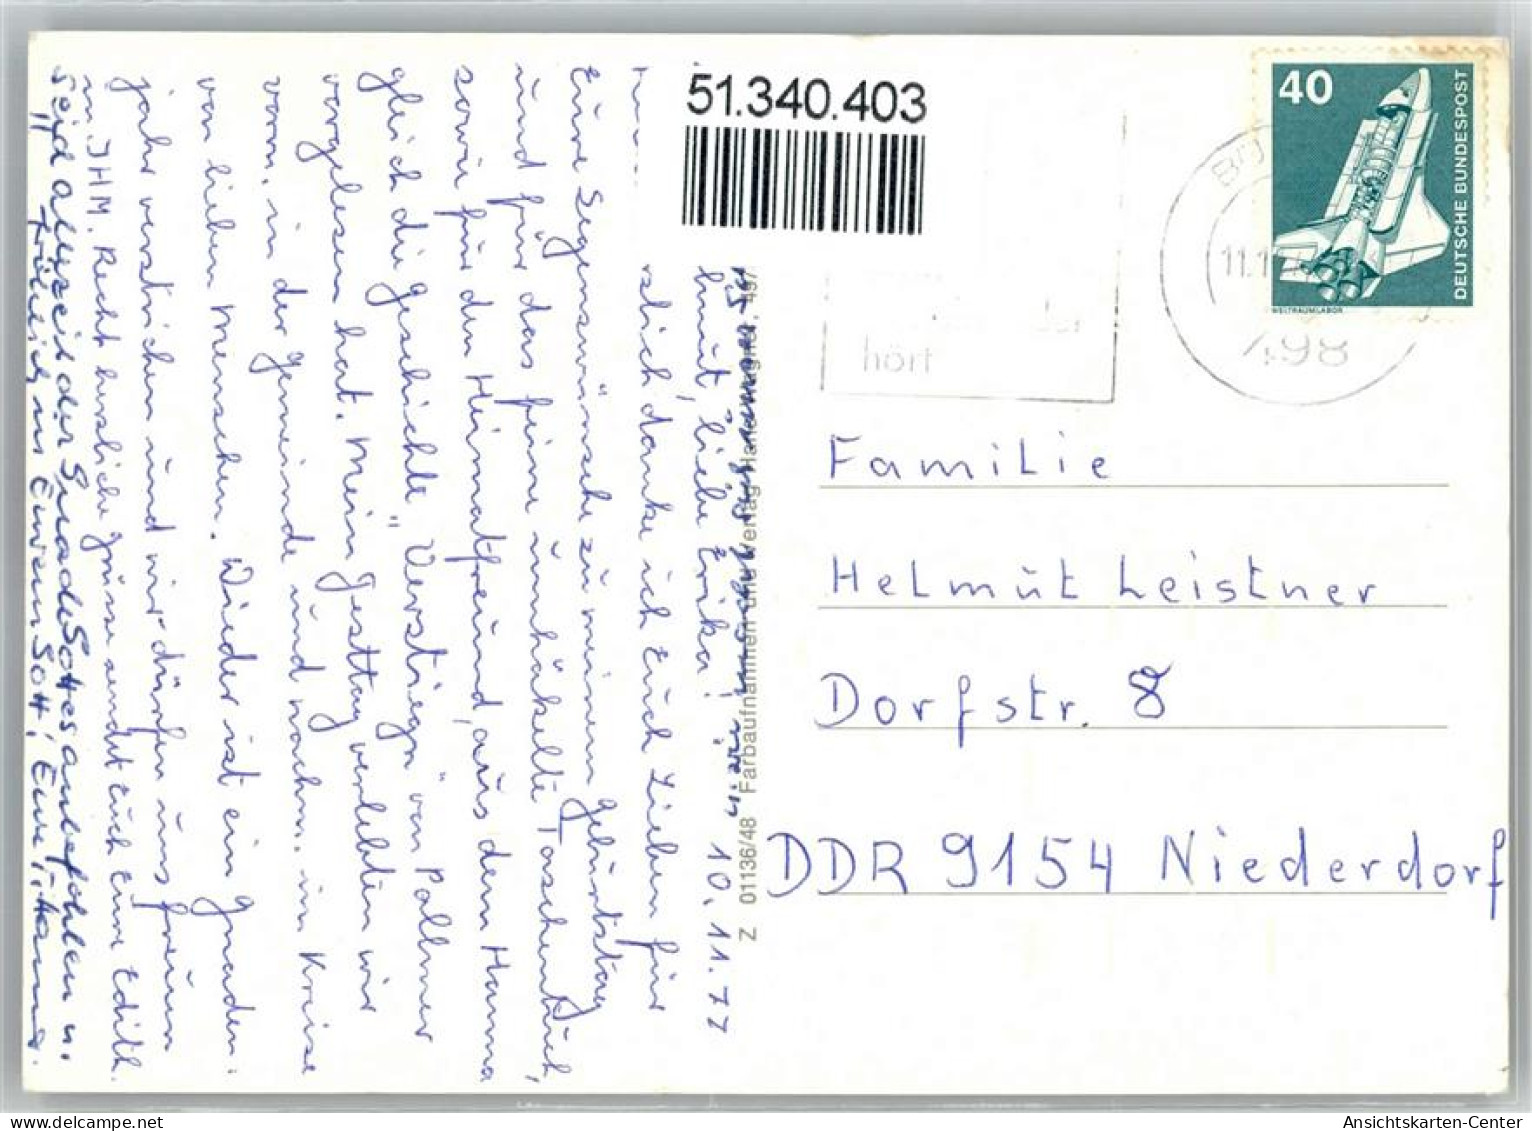 51.340.403
40
DEUTSCHE BUNDESPOST
WELTRAUMLABOR
11.1
498
hört
Familie
Helmut Leistner
Dorfstr. 8
DDR 9154 Niederdorf
Z 01136/48 Farbaufnahmen und Verlag Hans Wagner, 497
10.11.77
liebe Erika!
danke ich Euch Lieben für
Eure Segenswünsche zu meinem Geburtstag
und für das feine umhäkelte Taschentuch,
sowie für den Heimatfreund, aus dem Hanna
gleich die Geschichte "Verstiegn" von Pallmer
vorgelesen hat. Mein Festtag verlebten wir
vorm. in der Gemeinde und nachm. im Kreise
von lieben Menschen. Wieder ist ein Gnaden-
jahr verstrichen und wir dürfen uns freuen
in IHM. Recht herzliche Grüsse sendet Euch Eure Edith.
Seid allezeit der Gnade Gottes anbefohlen u.
fröhlich in Eurem Gott! Eure Hanna.
Ansichtskarten-Center